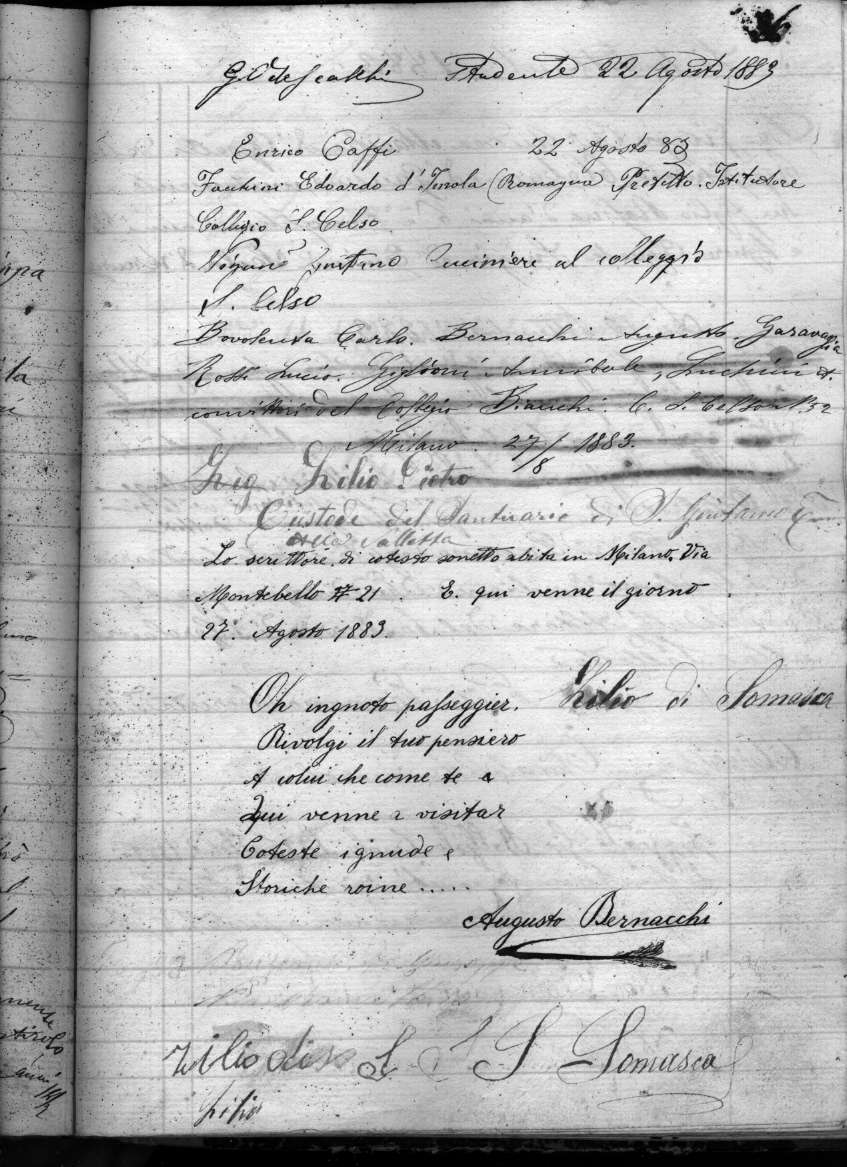 Studente 22 Agosto 1883
Enrico Caffi 22 Agosto 83
Facchini Edoardo d'Imola (Romagna) Prefetto. Istitutore
Collegio S. Celso
Gaetano cuciniere al colleggio
S. Celso
Bovolenta Carlo. Bernacchi Augusto. Garavaglia
Rossi Lucio. Giglioni Annibale, Luchini A.
convittori del Collegio Bianchi. C. S. Celso N. 32
Milano 27/8 1883.
Pietro
Custode del Santuario di S. Girolamo
alla Valletta
Lo scrittore di cotesto sonetto abita in Milano. Via
Montebello # 21. E. qui venne il giorno
27. Agosto 1883.
Oh ingnoto passeggier. di Somasca
Rivolgi il tuo pensiero
A colui che come te
Qui venne a visitar
Coteste ignude e
Storiche roine .....
Augusto Bernacchi
S S S Somasca